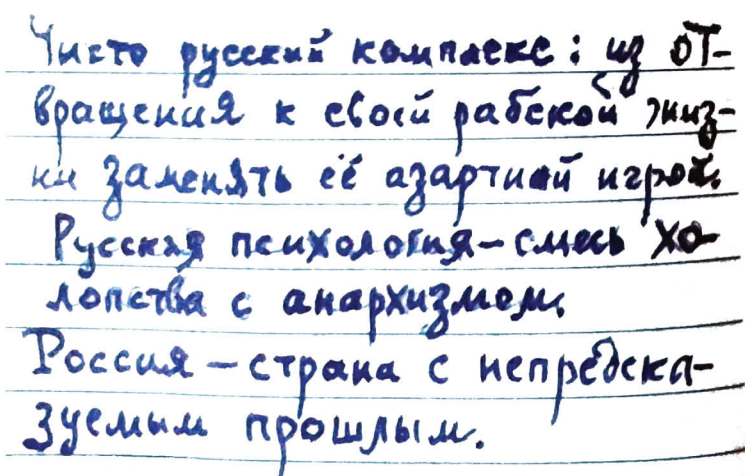 Чисто русский комплекс: из от-
вращения к своей рабской жиз-
ни заменять её азартной игрой.
Русская психология – смесь хо-
лопства с анархизмом.
Россия – страна с непредска-
зуемым прошлым.